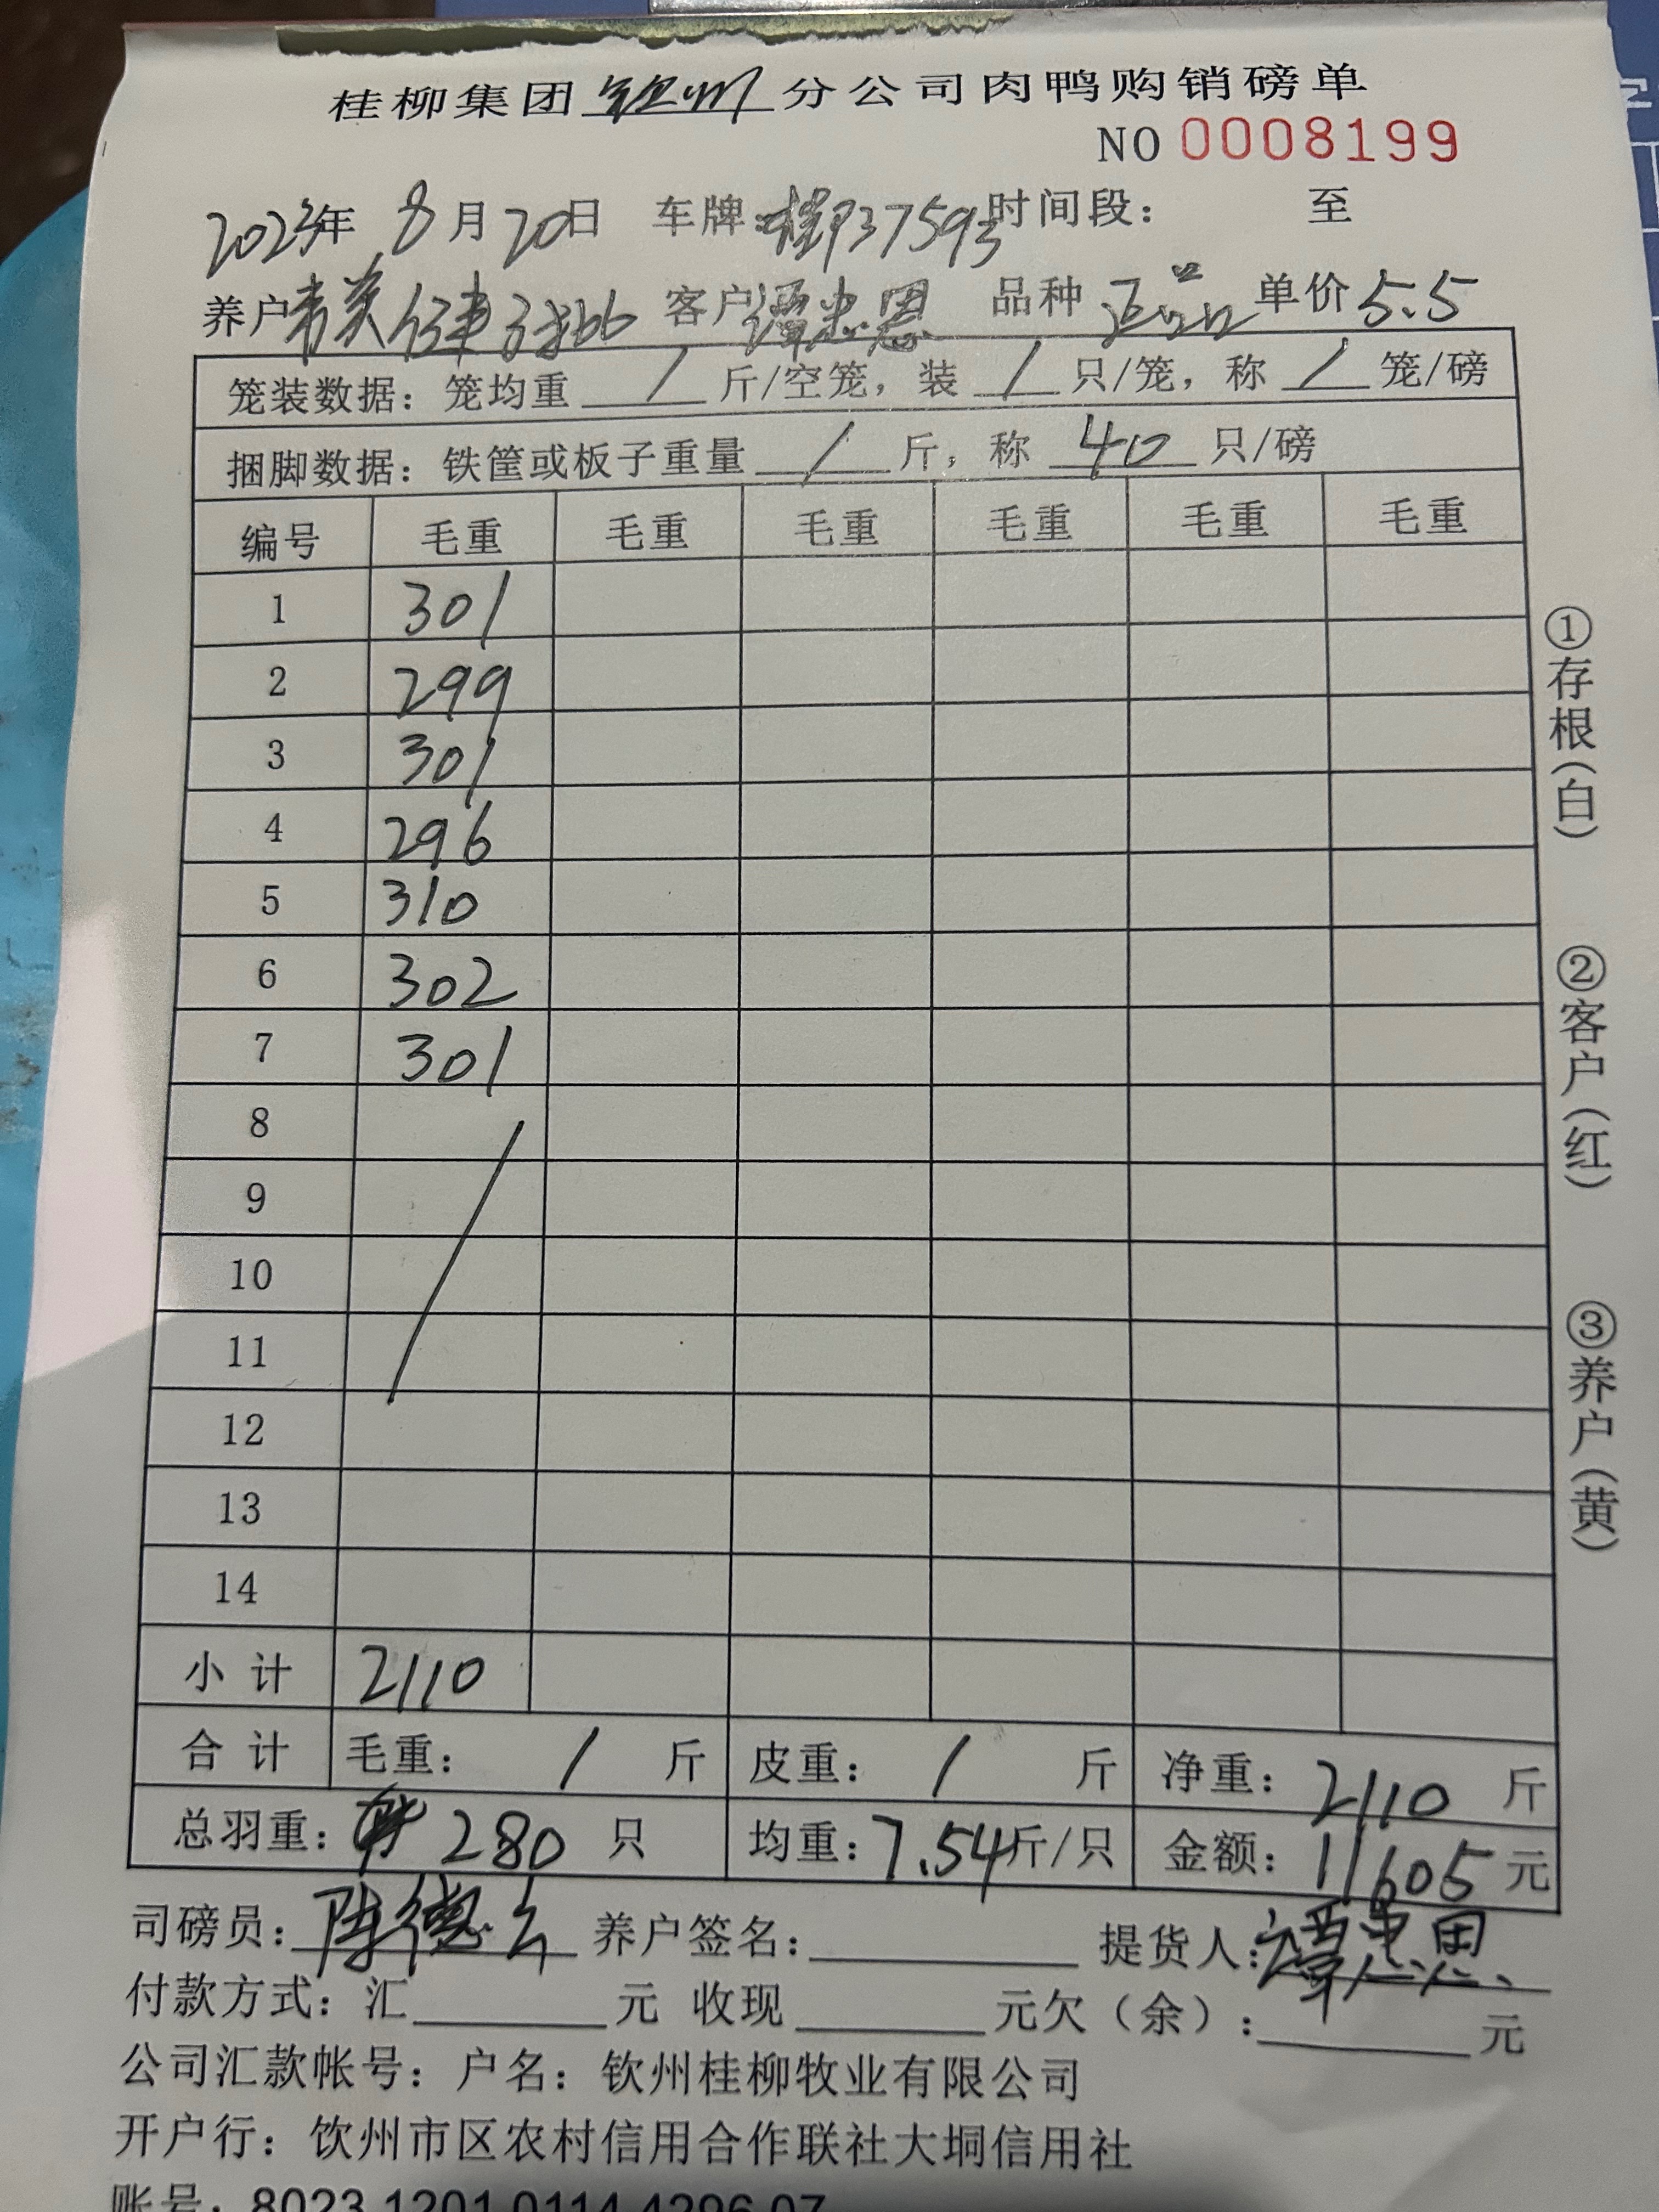 桂柳集团钦州分公司肉鸭购销磅单
NO 0008199
2023年 8月20日 车牌:桂P37593 时间段: 至
养户韦英 客户谭忠恩 品种 正品 单价5.5
笼装数据:笼均重 / 斤/空笼,装 / 只/笼,称 / 笼/磅
捆脚数据:铁筐或板子重量 / 斤,称 40 只/磅
编号 毛重 毛重 毛重 毛重 毛重 毛重
1 301
2 299
3 301
4 296
5 310
6 302
7 301
8
9
10
11
12
13
14
小计 2110
合计 毛重: / 斤 皮重: / 斤 净重:2110 斤
总羽重: 280 只 均重:7.54斤/只 金额:11605元
司磅员:陈德云 养户签名: 提货人:谭忠恩
付款方式:汇 元 收现 元欠(余): 元
公司汇款帐号:户名:钦州桂柳牧业有限公司
开户行:饮州市区农村信用合作联社大垌信用社
账号:8023 1201 0114 4296 07
①存根(白)
②客户(红)
③养户(黄)